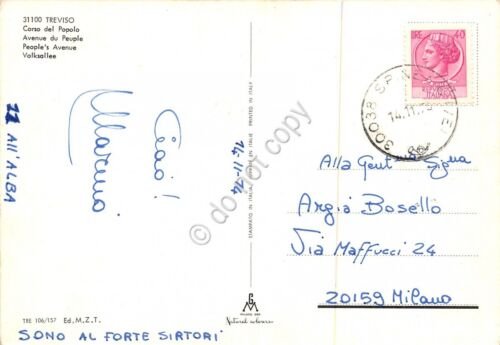 31100 TREVISO
Corso del Popolo
Avenue du Peuple
People's Avenue
Volksallee
11 All'ALBA
Ciao!
Marino
14-11-74
STAMPATO IN ITALIA - IMPRIMÉ EN ITALIE - PRINTED IN ITALY
do not copy
LIRE 40
30038 SPINEA
14.11.74
Alla Gent.ma Sig.na
Argia Bosello
Via Maffucci 24
20159 Milano
TRE 106/157 Ed. M.Z.T.
Natural colours
SONO AL FORTE SIRTORI